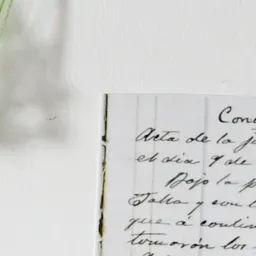 Con
Acta de la j
el dia 9 de
Bajo la p
Talla y con l
que á contin
tomaron los